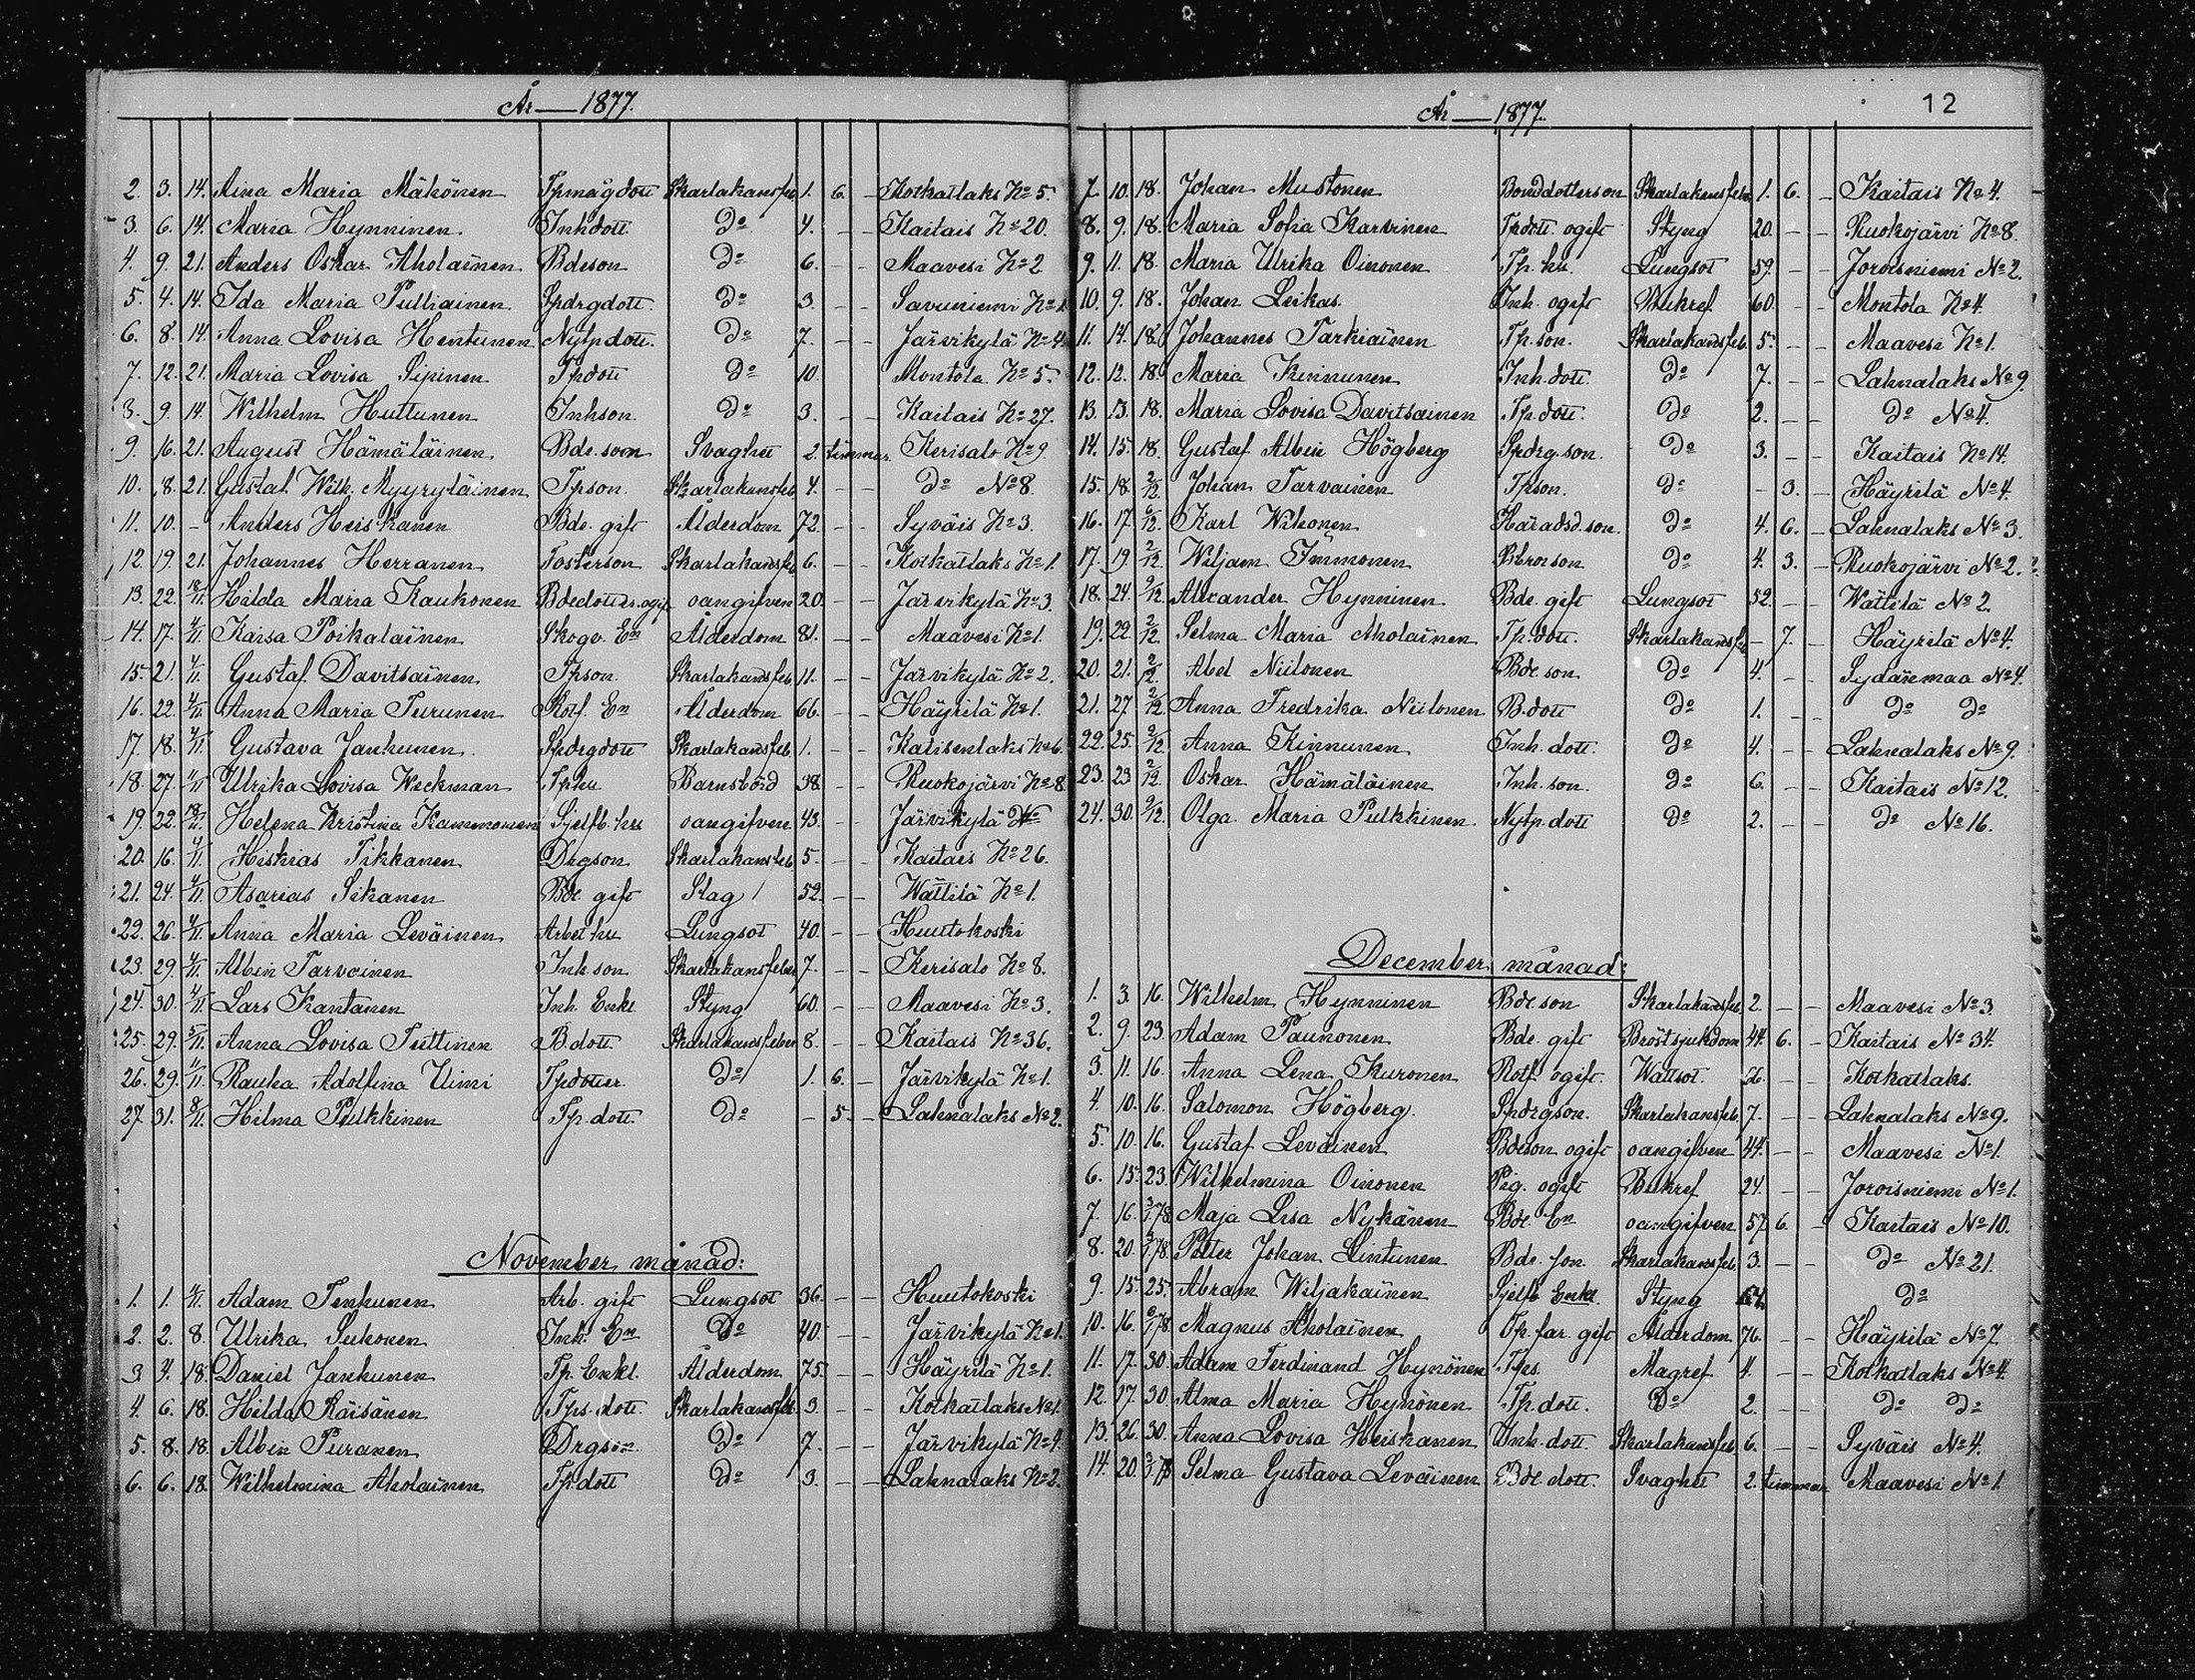 År — 1877.
2. 3. 14. Aina Maria Mäkönen Tpmågdott Skarlakansfeb. 1. 6. – Kotkatlaks No 5.
3. 6. 14. Maria Hynninen Inhdott. Do 4. – – Kaitais No 20.
4. 9. 21. Anders Oskar Aholainen Bdeson Do 6. – – Maavesi No 2
5. 4. 14. Ida Maria Pulliainen Spdrgdott. Do 3. – – Savuniemi No 1.
6. 8. 14. Anna Lovisa Hentunen Nytpdott. Do 7. – – Järvikylä No 4.
7. 12. 21. Maria Lovisa Sipinen Tpdott Do 10. Montola No 5.
8. 9. 14. Wilhelm Huttunen Inhson. Do 3. – – Kaitais No 27.
9. 16. 21. August Hämäläinen Bde. son Svaghet 2. timmar. Kerisalo No 9.
10. 18. 21. Gustaf Wilh. Myyryläinen Tpson. Skarlakansfeb. 4. – – Do No 8.
11. 10. – Anders Heiskanen Bde. gift Ålderdom 72. – – Syväis No 3.
12. 19. 21. Johannes Herranen Fosterson Skarlakansfeb. 6. – – Kotkatlaks No 1.
13. 22. 18/11. Hilda Maria Kaukonen Bdedotter ogift oangifven 20. – – Järvikylä No 3.
14. 17. 4/11. Kaisa Poikalainen Skogv. En Ålderdom 81. – – Maavesi No 1.
15. 21. 4/11. Gustaf Davitsainen Tpson. Skarlakansfeb. 11. – – Järvikylä No 2.
16. 22. 4/11. Anna Maria Turunen Rotf. En Ålderdom 66. – – Häyrilä No 1.
17. 18. 4/11. Gustava Janhunen Spdrgdott Skarlakansfeb. 1. – – Katisenlaks No 6.
18. 27. 4/11 Ulrika Lovisa Weckman Tphu Barnsbörd 38. – – Ruokojärvi No 8
19. 22. 18/11. Helena Kristina Kammonen Sjelfb. hu oangifven 43. – – Järvikylä
20. 16. 4/11. Hiskias Tikkanen Drgson Skarlakansfeb. 5. – – Kaitais No 26.
21. 24. 4/11. Asarias Sikanen Bde. gift Slag 52. – – Wättilä No 1.
22. 26. 4/11. Anna Maria Leväinen Arbet hu Lungsot 40. – – Huutokoski
23. 29. 4/11. Albin Tarvainen Inh son Skarlakansfeber 7. – – Kerisalo No 8.
24. 30. 4/11. Lars Kantanen Inh. Enkl. Styng 60. – – Maavesi No 3.
25. 29. 5/11. Anna Lovisa Tuttinen B. dott. Skarlakansfeber 8. – – Kaitais No 36.
26. 29. 11/11. Rauha Adolfina Uimi Tpdotter Do 1. 6. – Järvikylä No 1.
27. 31. 8/11. Hilma Pulkkinen Tp. dott. Do – 5. – Lahnalaks No 2.
November månad:
1. 1. 4/11. Adam Tenhunen Arb. gift Lungsot 36. – – Huutokoski
2. 2. 8. Ulrika Suhonen Inh. En Do 40. – – Järvikylä No 1.
3 4. 18. Daniel Janhunen Tp. Enkl. Ålderdom 75. – – Häyrilä No 1.
4. 6. 18. Hilda Räisänen Tps. dott. Skarlakansfeb. 3. – – Kotkatlaks No 1.
5. 8. 18. Albin Puranen Drgson. Do 7. – – Järvikylä No 4.
6. 6. 18. Wilhelmina Aholainen Tp. dott Do 3. – – Lahnalaks No 2.
År — 1877. 12
7. 10. 18. Johan Mustonen Bonddotterson Skarlakansfeb. 1. 6. – Kaitais No 4.
8. 9. 18. Maria Sofia Karvinen Tpdott. ogift Styng 20. – – Ruokojärvi No 8.
9. 11. 18. Maria Ulrika Oinonen Tp. hu. Lungsot 59. – – Joroisniemi No 2.
10. 9. 18. Johan Leikas Inh. ogift Bukref 60. – – Montola No 4.
11. 14. 18. Johannes Tarkiainen Tp. son. Skarlakansfeb. 5. – – Maavesi No 1.
12. 12. 18. Maria Kinnunen Inh. dott. Do 7. – – Lahnalaks No 9.
13. 13. 18. Maria Lovisa Davitsainen Tp. dott. Do 2. – – Do No 4.
14. 15. 18. Gustaf Albin Högberg Spdrg. son. Do 3. – – Kaitais No 14.
15. 18. 2/12. Johan Tarvainen Tpson. Do – 3. – Häyrilä No 4.
16. 17. 2/12. Karl Wihonen Häradsd. son. Do 4. 6. – Lahnalaks No 3.
17. 19. 2/12. Wiljam Immonen Bbror son Do 4. 3. – Ruokojärvi No 2.
18. 24. 2/12. Alexander Hynninen Bde. gift Lungsot 52. – – Wättilä No 2.
19. 22. 2/12. Selma Maria Aholainen Tp. dott. Skarlakansfeb. – 7. – Häyrilä No 4.
20. 21. 2/12. Abel Niilonen Bde. son Do 4. – – Sydänmaa No 4.
21. 27. 2/12. Anna Fredrika Niilonen B. dott Do 1. – – Do Do
22. 25. 2/12. Anna Kinnunen Inh. dott. Do 4. – – Lahnalaks No 9.
23. 23 2/12. Oskar Hämäläinen Inh. son. Do 6. – – Kaitais No 12.
24. 30. 9/12. Olga Maria Pulkkinen Nytp. dott Do 2. – – Do No 16.
December månad:
1. 3. 16. Wilhelm Hynninen Bde son Skarlakansfeb. 2. – – Maavesi No 3.
2. 9. 23. Adam Paunonen Bde. gift Bröstsjukdom 44. 6. – Kaitais No 34.
3. 11. 16. Anna Lena Kuronen Rotf. ogift. Wattsot. 66. – – Kotkatlaks.
4. 10. 16. Salomon Högberg. Spdrgson. Skarlakansfeb. 7. – – Lahnalaks No 9.
5. 10. 16. Gustaf Leväinen Bdeson ogift oangifven 44. – – Maavesi No 1.
6. 15. 23. Wilhelmina Oinonen Pig. ogift Bukref 24. – – Joroisniemi No 1.
7. 16. 3/1.78. Maja Lisa Nykänen Bde. En oangifven 57. 6. – Kaitais No 10.
8. 20. /1.78. Petter Johan Lintunen Bde. son. Skarlakansfeb. 3. – – Do No 21.
9. 15. 25. Abram Wiljakainen Sjelfb Enkl. Styng – – Do
10. 16. 6/1.78. Magnus Aholainen Tp. far. gift Ålderdom 76. – – Häyrilä No 7.
11. 17. 30. Adam Ferdinand Hynönen Tps. Magref 4. – – Kotkatlaks No 4.
12. 27. 30. Alma Maria Hynönen Tp. dott. Do 2. – – Do Do
13. 26. 30. Anna Lovisa Heiskanen Inh. dott. Skarlakansfeb. 6. – – Syväis No 4.
14. 20. /1.78 Selma Gustava Leväinen Bde dott. Svaghet 2. timmar Maavesi No 1.